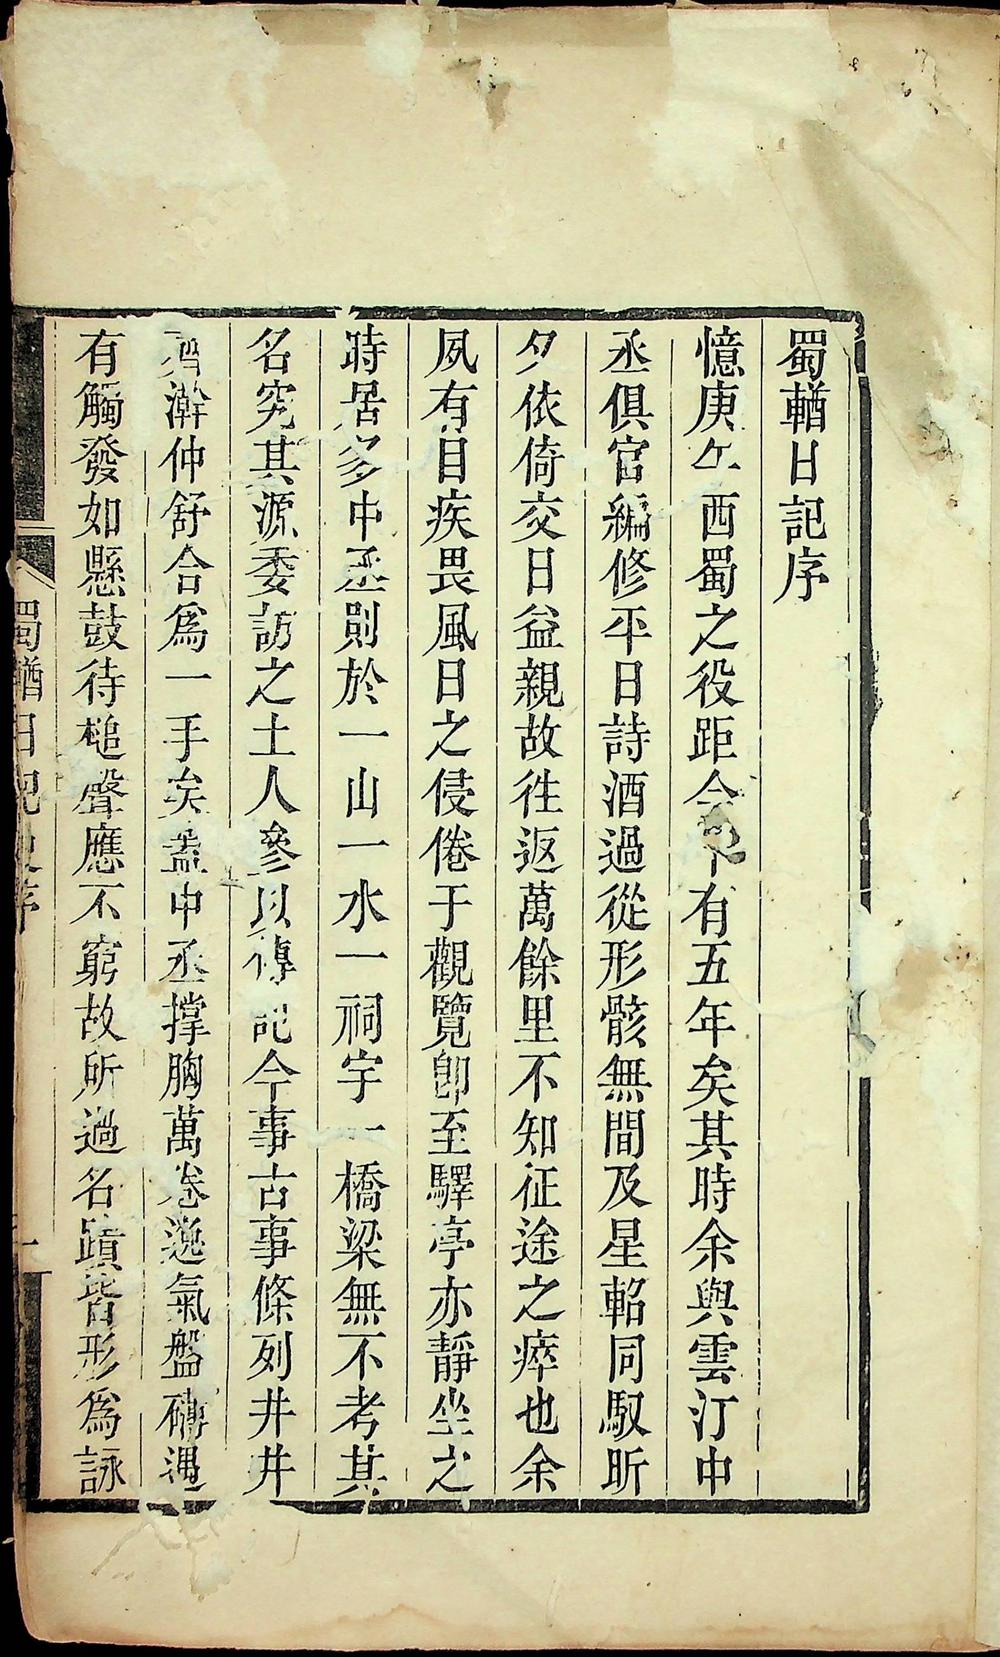 蜀輶日記序
憶庚午西蜀之役距今十有五年矣其時余與雲汀中
丞俱官編修平日詩酒過從形骸無間及星軺同馭昕
夕依倚交日益親故徃返萬餘里不知征途之瘁也余
夙有目疾畏風日之侵倦于觀覽卽至驛亭亦靜坐之
時居多中丞則於一山一水一祠宇一橋梁無不考其
名究其源委訪之土人參以傳記今事古事條列井井
瀚仲舒合爲一手矣蓋中丞撐胸萬卷逸氣盤礴遇
有觸發如懸鼓待槌聲應不窮故所過名蹟皆形爲詠
蜀輶日記序
一